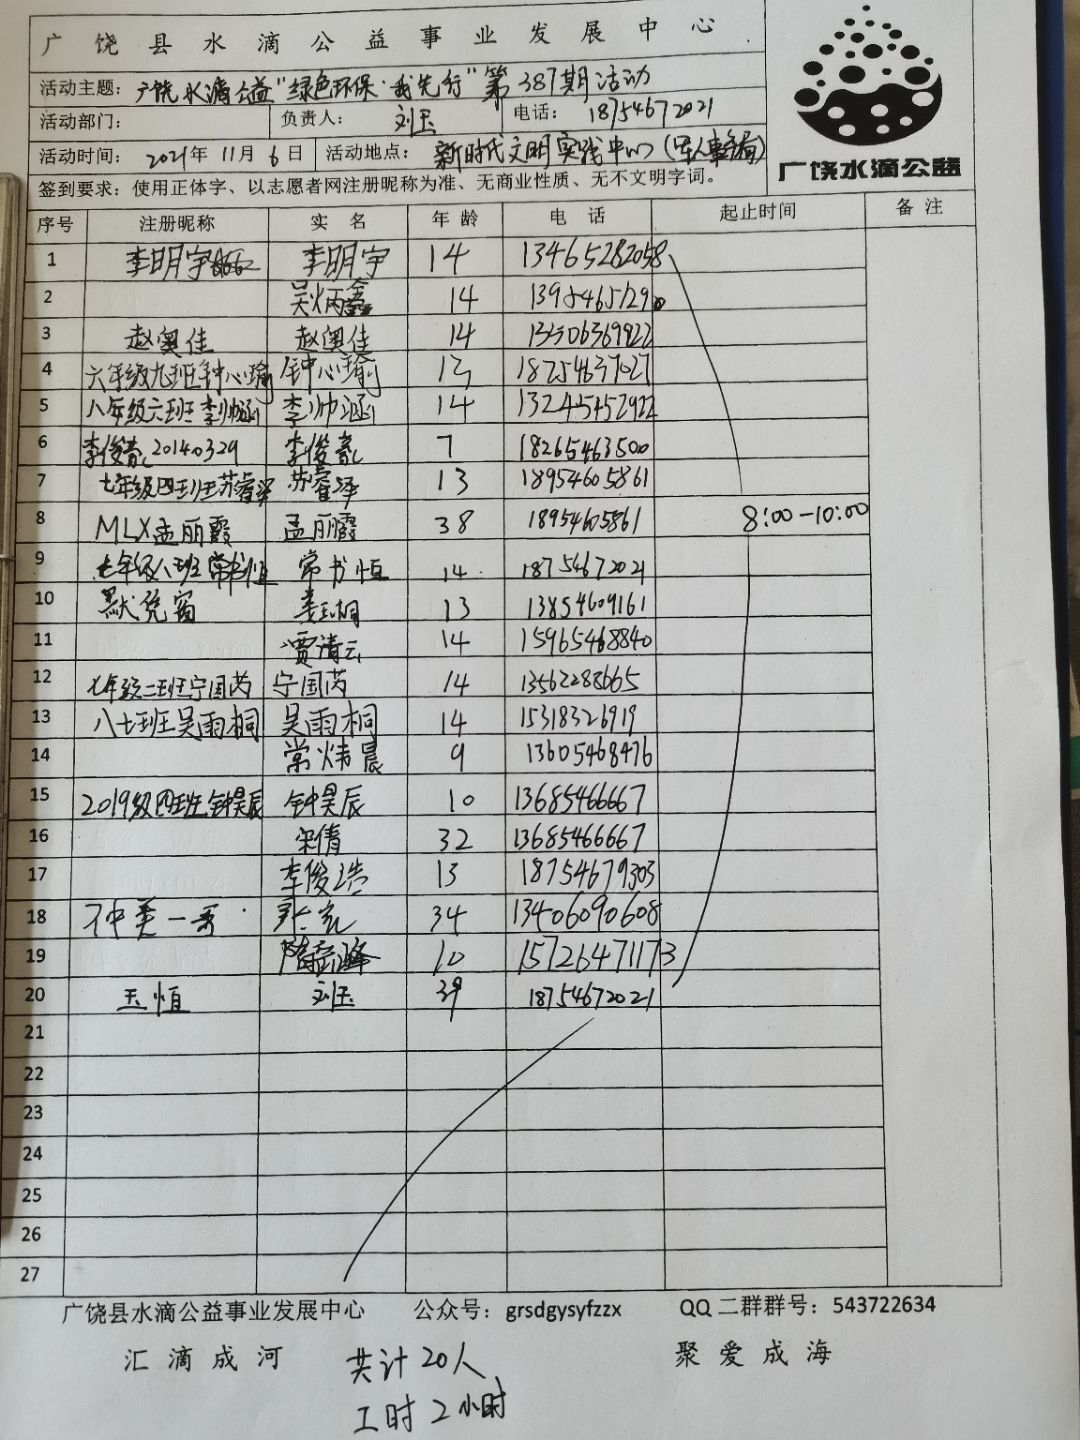 广饶县水滴公益事业发展中心
活动主题：广饶水滴公益“绿色环保·我先行”第387期活动
活动部门： 负责人：刘玉 电话：18754672021
活动时间：2021年11月6日 活动地点：新时代文明实践中心（军人事务局）
广饶水滴公益
签到要求：使用正体字、以志愿者网注册昵称为准、无商业性质、无不文明字词。
序号 注册昵称 实名 年龄 电话 起止时间 备注
1 李明宇 李明宇 14 13465282058
2 吴炳鑫 14
3 赵奥佳 赵奥佳 14
4 六年级九班钟心瑜 钟心瑜 13 18254637027
5 八年级六班李帅涵 李帅涵 14 13245452922
6 李俊毅20140329 李俊毅 7 18265463500
7 七年级四班苏睿泽 苏睿泽 13 18954605861
8 MLX孟丽霞 孟丽霞 38 18954605861 8:00-10:00
9 七年级八班常书恒 常书恒 14 18754672021
10 13 13854609161
11 贾清云 14 15965468840
12 七年级二班宁国芮 宁国芮 14 13562288665
13 八七班吴雨桐 吴雨桐 14 15318326919
14 常炜晨 9 13605468476
15 2019级四班钟昊辰 钟昊辰 10 13685466667
16 宋倩 32 13685466667
17 李俊浩 13 18754679303
18 34 13406090608
19 10 15726471173
20 玉恒 刘玉 39 18754672021
21
22
23
24
25
26
27
广饶县水滴公益事业发展中心 公众号：grsdgysyfzzx QQ二群群号：543722634
汇滴成河 共计20人 聚爱成海
工时2小时